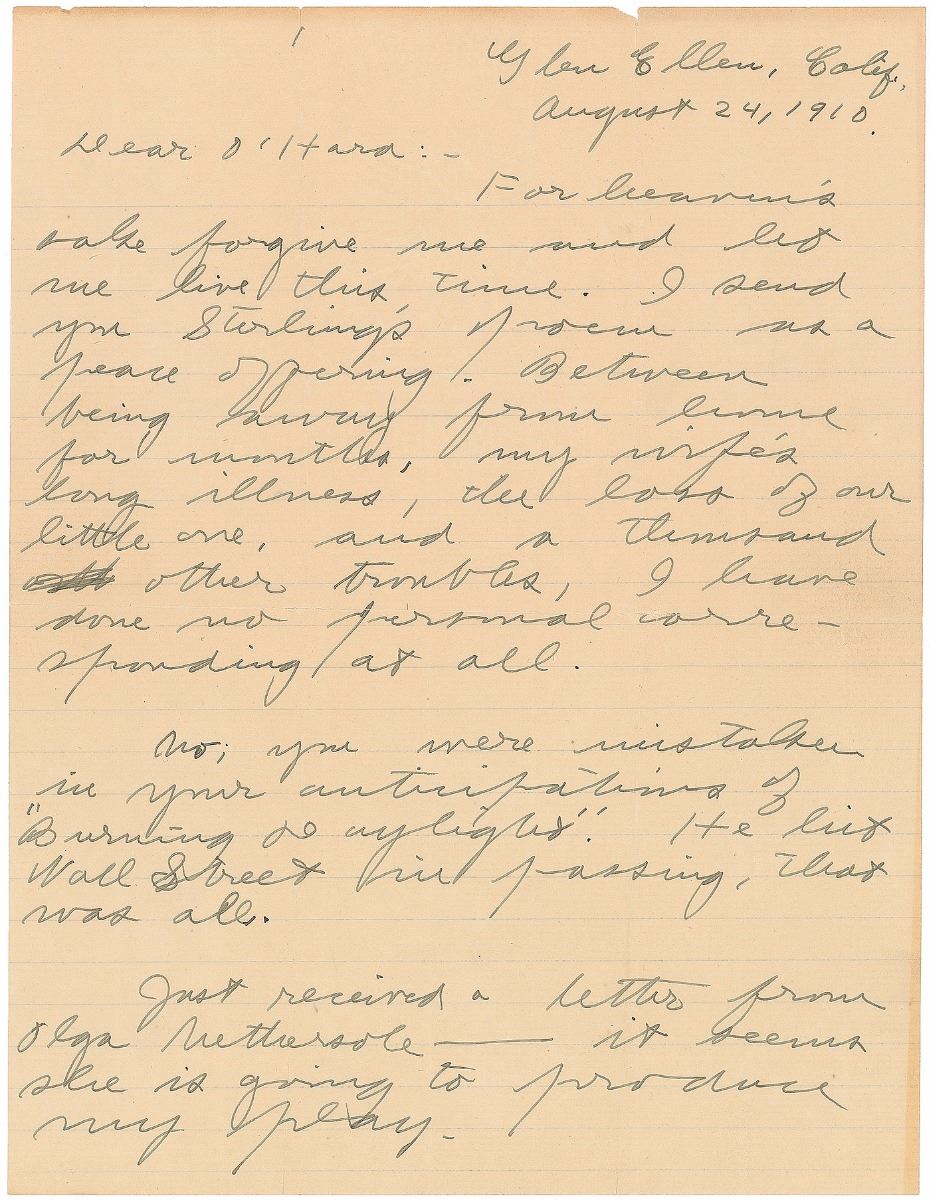 Glen Ellen, Calif.,
August 24, 1910.
Dear O'Hara:-
For heaven's
sake forgive me and let
me live this time. I send
you Sterling's poem as a
peace offering. Between
being away from home
for months, my wife's
long illness, the loss of our
little one, and a thousand
other troubles, I have
done no personal corre-
sponding at all.
No; you were mistaken
in your anticipations of
"Burning Daylight". He hit
Wall Street in passing, that
was all.
Just received a letter from
Olga Nethersole — it seems
she is going to produce
my play.